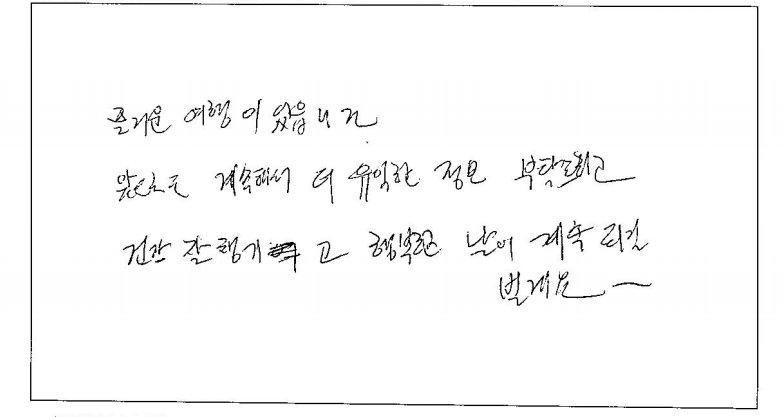 즐거운 여행이 왔읍니다
앞으로 계속해서 더 유익한 정보 부탁드리고
건강 잘 챙기 고 행복한 날이 계속 되길
빌게요~